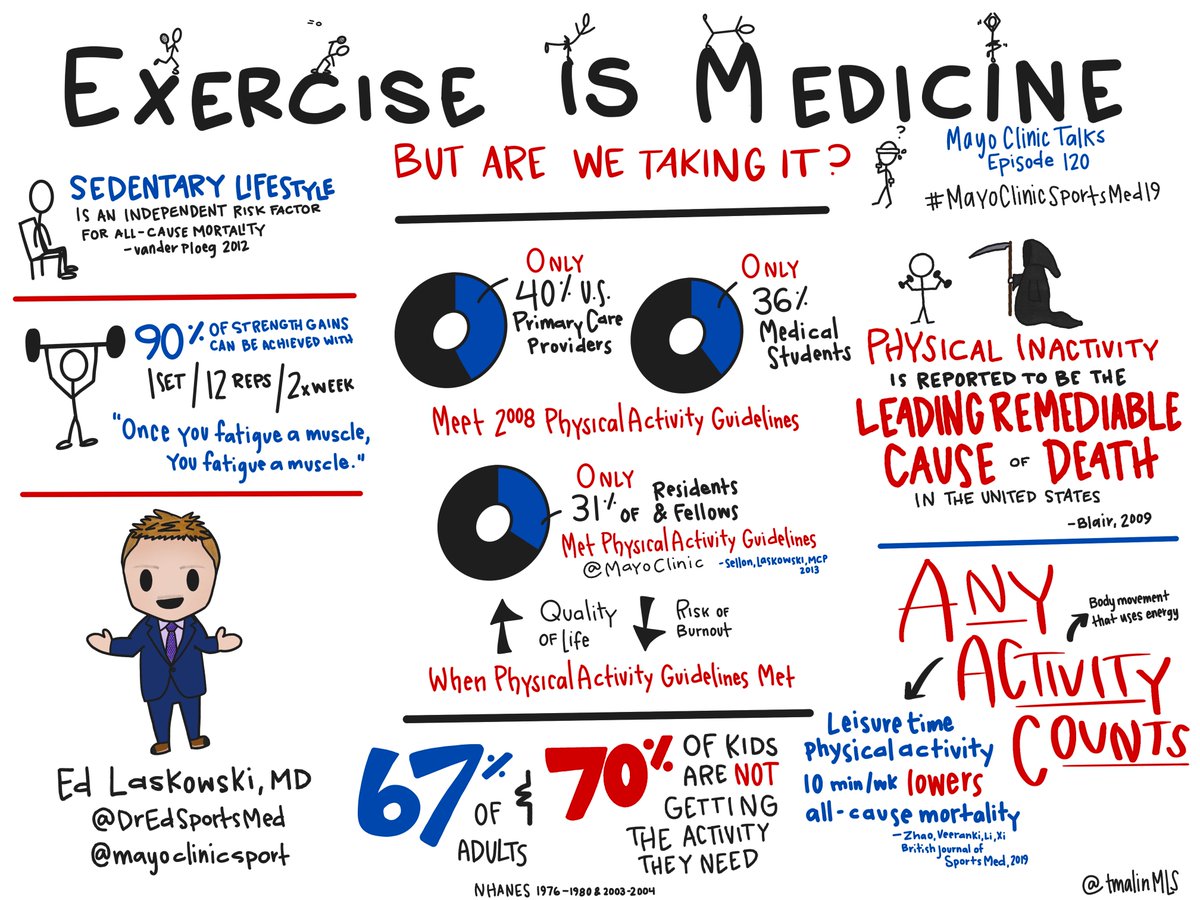 EXERCISE IS MEDICINE
BUT ARE WE TAKING IT?
?
Mayo Clinic Talks
Episode 120
#MayoClinicSportsMed19
SEDENTARY LIFESTYLE
IS AN INDEPENDENT RISK FACTOR
FOR ALL-CAUSE MORTALITY
-vander Ploeg 2012
90% OF STRENGTH GAINS
CAN BE ACHIEVED WITH
1 SET / 12 REPS / 2x WEEK
"Once you fatigue a muscle,
You fatigue a muscle."
Ed Laskowski, MD
@DrEdSportsMed
@mayoclinicsport
ONLY
40% U.S.
Primary Care
Providers
ONLY
36%
Medical
Students
Meet 2008 Physical Activity Guidelines
ONLY
31% OF Residents
& Fellows
Met Physical Activity Guidelines
@MayoClinic -Sellon, Laskowski, MCP
2013
Quality
of Life
Risk of
Burnout
When Physical Activity Guidelines Met
67% OF
ADULTS
&
70% OF KIDS
ARE NOT
GETTING
THE ACTIVITY
THEY NEED
NHANES 1976-1980 & 2003-2004
PHYSICAL INACTIVITY
IS REPORTED TO BE THE
LEADING REMEDIABLE
CAUSE OF DEATH
IN THE UNITED STATES
-Blair, 2009
ANY
ACTIVITY
COUNTS
Body movement
that uses energy
Leisure time
physical activity
10 min/wk lowers
all-cause mortality
-Zhao, Veeranki, Li, Xi
British Journal of
Sports Med, 2019
@tmalinMLS